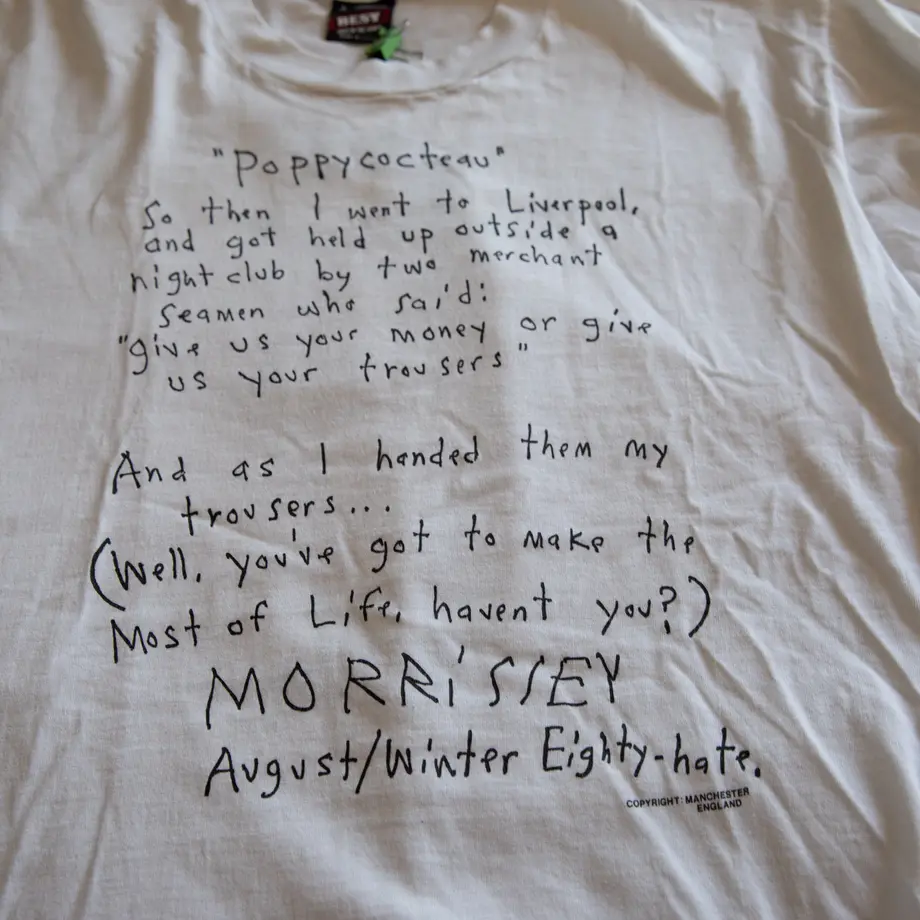 BEST
"Poppycocteau"
So then I went to Liverpool,
and got held up outside a
nightclub by two merchant
seamen who said:
"give us your money or give
us your trousers"
And as I handed them my
trousers...
(Well, you've got to make the
Most of Life, havent you?)
MORRiSSEY
August/Winter Eighty-hate.
COPYRIGHT: MANCHESTER
ENGLAND